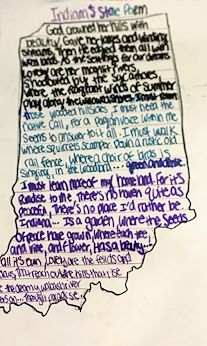 Indiana's State Poem
God crowned her hills with
beauty, Gave her lakes and winding
streams, Then He edged them all with
woodlands As the settings for our dreams
Lovely are her moonlit rivers
Shadowed by the sycamores,
Where the fragrant winds of Summer
Play along the willowed shores. I must roam
those wooded hillsides, I must heed the
native call, For a Pagan voice within me
Seems to answer to it all. I must walk
where squirrels scamper Down a rustic old
rail fence, Where a choir of birds is
Singing, In the woodland... green and dense.
I must learn more of my homeland For it's
Paradise to me, There's no haven quite as
peaceful, There's no place I'd rather be.
Indiana... Is a garden, Where the seeds
of peace have grown, Where each tree,
and vine, and flower, Has a beauty...
all its own. Lovely are the fields and
That reach out where hills that rise
the dreamy Wabash river
paradise...